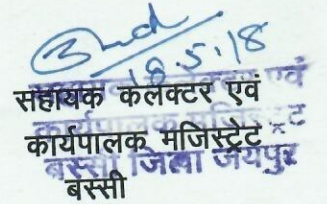 18.5.18
सहायक कलेक्टर एवं
कार्यपालक मजिस्ट्रेट
बस्सी जिला जयपुर
बस्सी